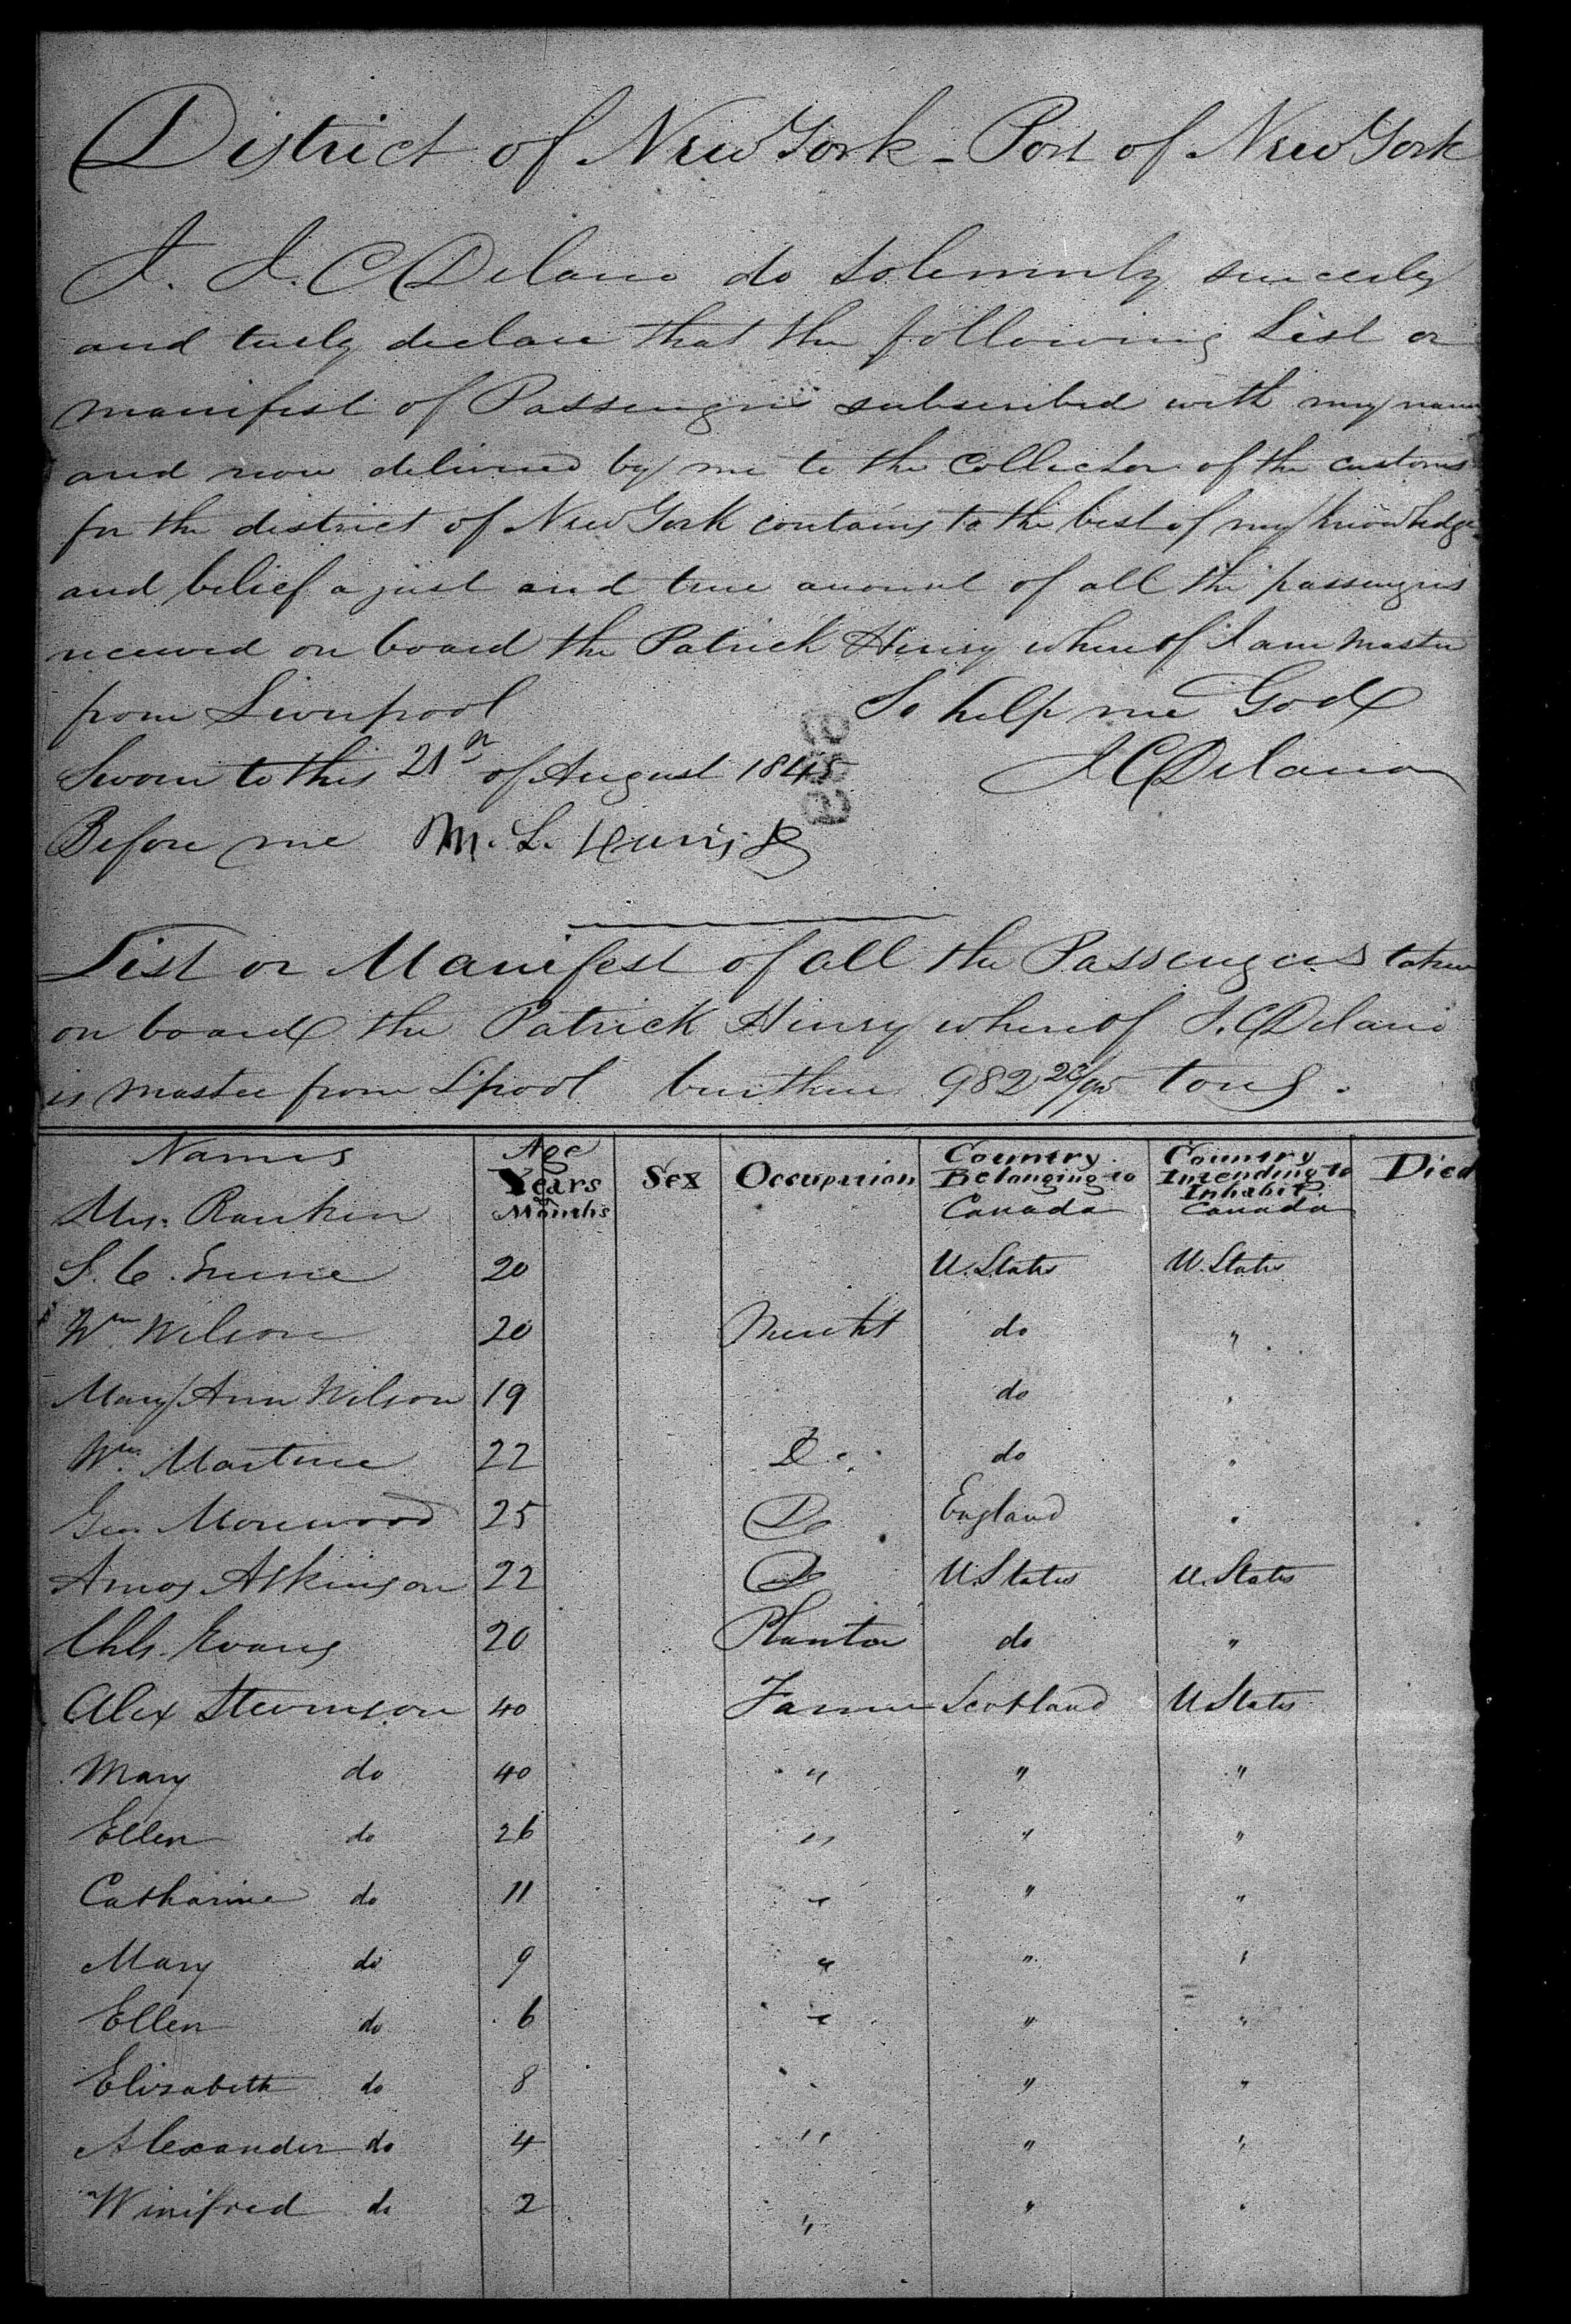 District of New York - Port of New York
I. J. C Delano do Solemnly sincerely
and truly declare that the following List or
manifest of Passengers subscribed with my name
and now delivered by me to the Collector of the customs
for the district of New York contains to the best of my knowledge
and belief a just and true account of all the passengers
received on board the Patrick Henry whereof I am Master
from Liverpool So help me God
Sworn to this 21 of August 1845 J C Delano
Before me M. L.
List or Manifest of all the Passengers taken
on board the Patrick Henry whereof J. C Delano
is master from L'pool burthen 982 tons.
Names Age Years & Months Sex Occupation Country Belonging to Country Intending to Inhabit Died
Mrs. Rankin Canada Canada
S. C. 20 U. States U. States
Wm Wilson 20 Mercht do "
Mary Ann Wilson 19 do "
Wm. Martine 22 Do do "
Geo. Morewood 25 Do England "
Amos Atkinson 22 Do U. States U. States
Chls. Evans 20 Planter do "
Alex Stevenson 40 Farmer Scotland U States
Mary do 40 " " "
Ellen do 26 " " "
Catharine do 11 " " "
Mary do 9 " " "
Ellen do 6 " " "
Elizabeth do 8 " " "
Alexander do 4 " " "
Winifred do 2 " " "